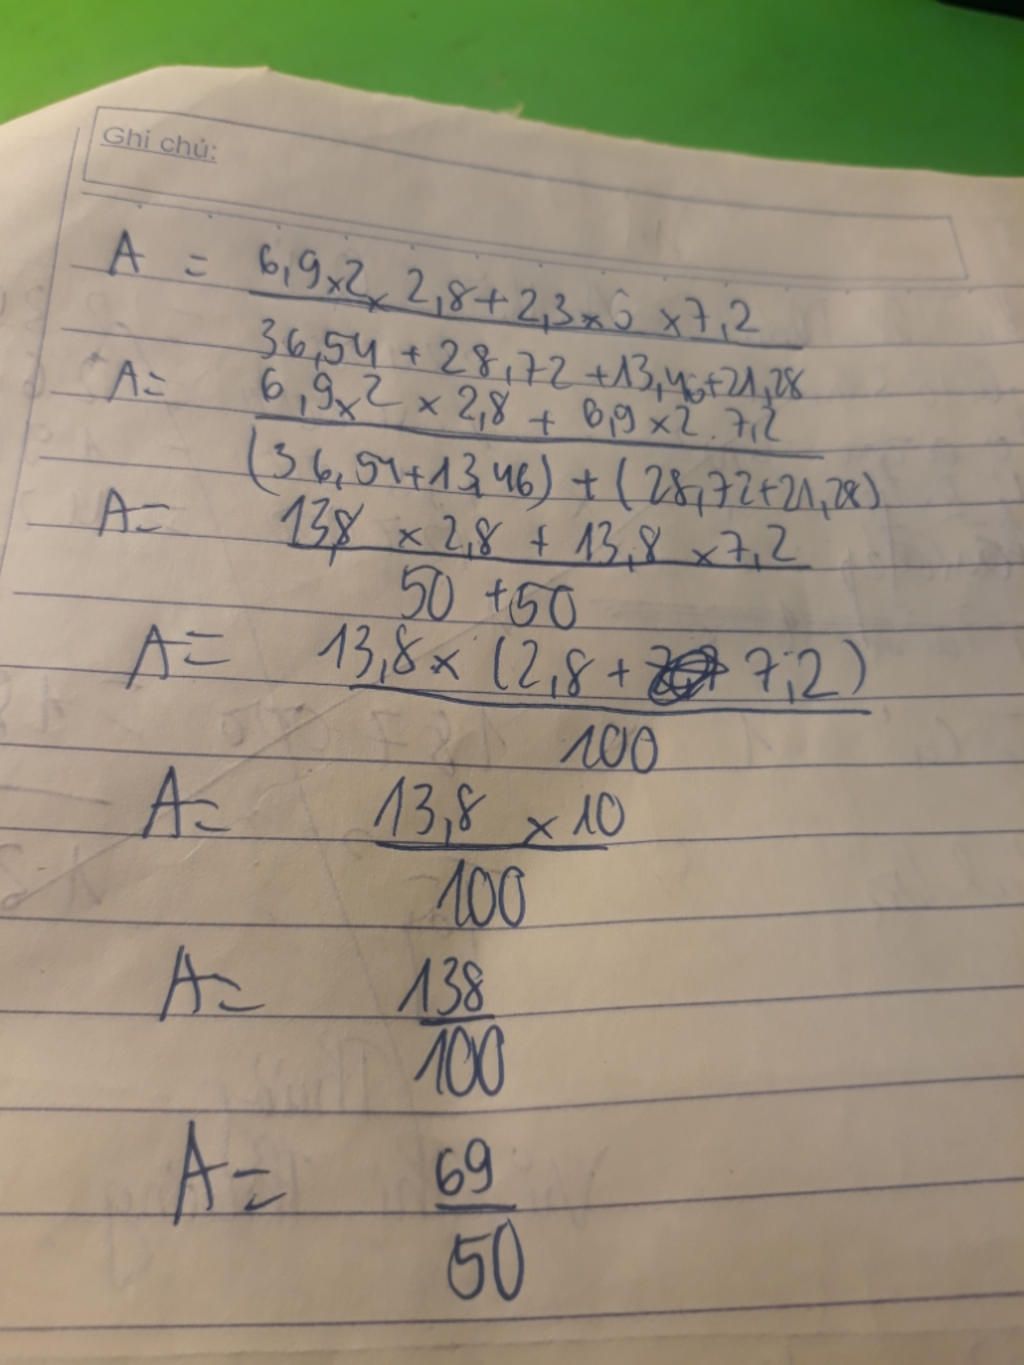 Ghi chú:
A = 6,9 x 2 x 2,8 + 2,3 x 6 x 7,2
36,54 + 28,72 + 13,46 + 21,28
A = 6,9 x 2 x 2,8 + 6,9 x 2 . 7,2
(36,54 + 13,46) + (28,72 + 21,28)
A = 13,8 x 2,8 + 13,8 x 7,2
50 + 50
A = 13,8 x (2,8 + 7,2)
100
A = 13,8 x 10
100
A = 138
100
A = 69
50